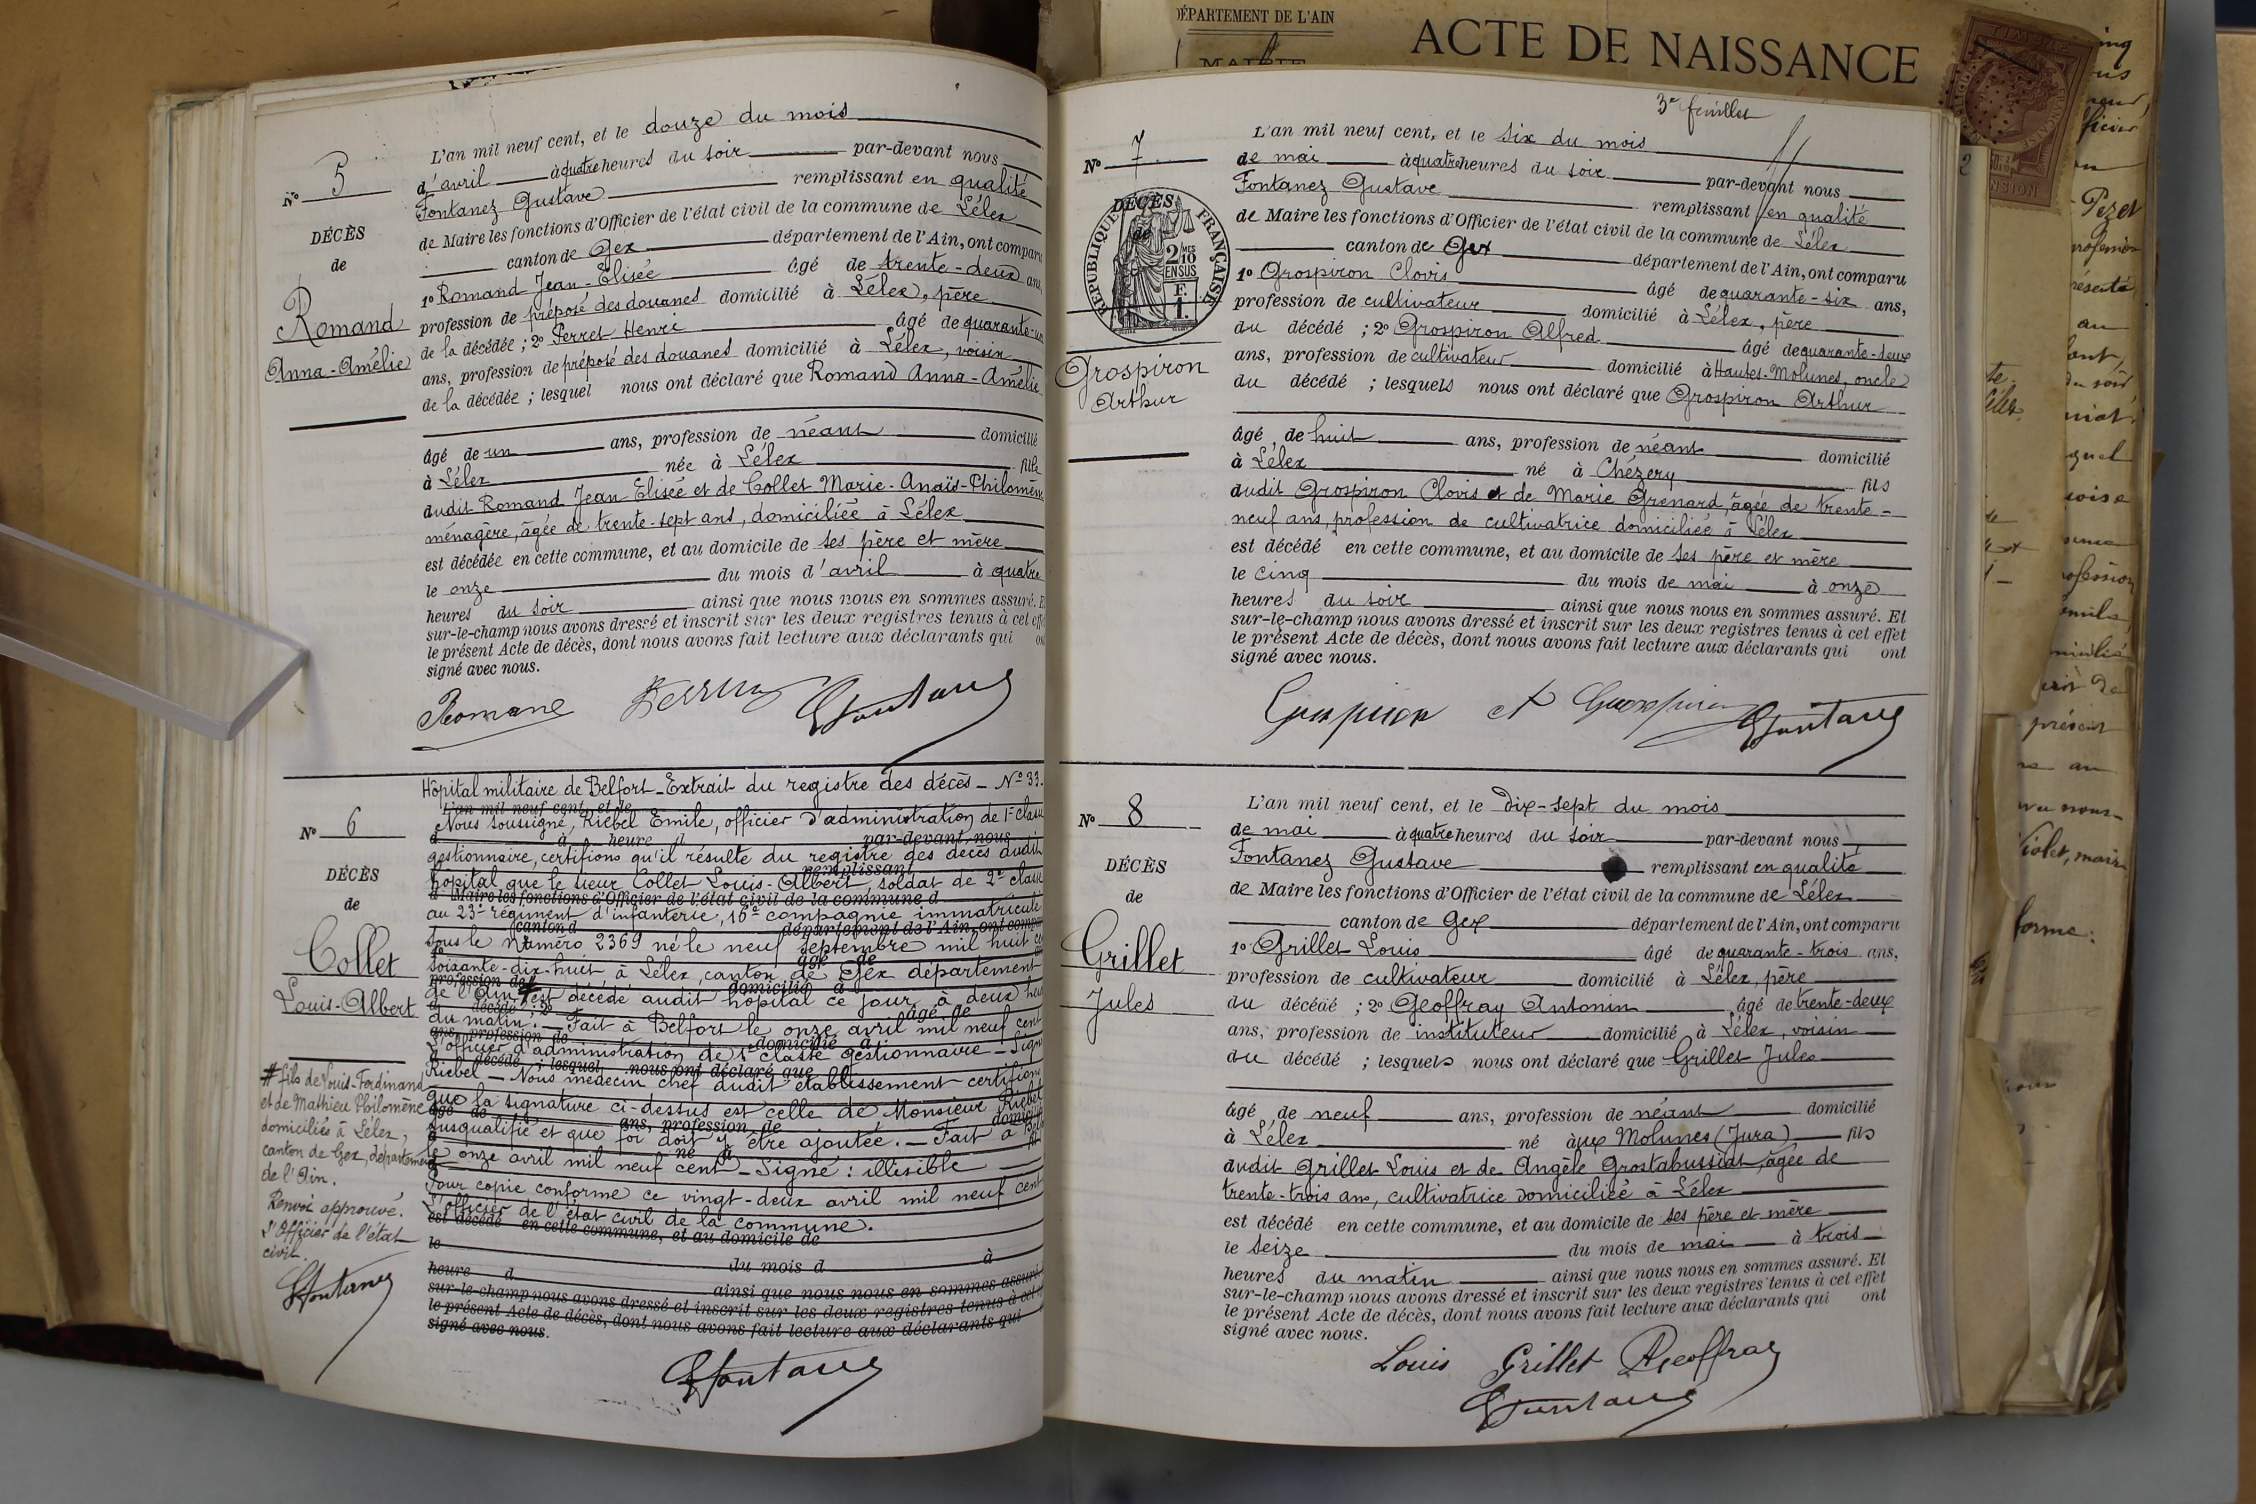 N° 5
DÉCÈS
de
Romand
Anna-Amélie
L'an mil neuf cent, et le douze du mois
d'avril à quatre heures du soir par-devant nous
Fontanez Gustave remplissant en qualité
de Maire les fonctions d'Officier de l'état civil de la commune de Lélex
canton de Gex département de l'Ain, ont comparu
1° Romand Jean-Elisée âgé de trente-deux ans,
profession de préposé des douanes domicilié à Lélex, père
de la décédée ; 2° Perret Henri âgé de quarante-un
ans, profession de préposé des douanes domicilié à Lélex, voisin
de la décédée ; lesquel nous ont déclaré que Romand Anna-Amélie
âgé de un ans, profession de néant domicilié
à Lélex née à Lélex fille
dudit Romand Jean Elisée et de Collet Marie-Anaïs-Philomène
ménagère, âgée de trente-sept ans, domiciliée à Lélex
est décédée en cette commune, et au domicile de ses père et mère
le onze du mois d'avril à quatre
heures du soir ainsi que nous nous en sommes assuré. Et
sur-le-champ nous avons dressé et inscrit sur les deux registres tenus à cet eff
le présent Acte de décès, dont nous avons fait lecture aux déclarants qui on
signé avec nous.
Romand Perret GFontanez
N° 6
DÉCÈS
de
Collet
Louis-Albert
Hôpital militaire de Belfort - Extrait du registre des décès - N° 33.
L'an mil neuf cent, et le
Nous soussigné, Riebel Emile, officier d'administration de 1re classe
d à heure d par-devant nous
gestionnaire, certifions qu'il résulte du registre des décès dudit
remplissant
hôpital que le sieur Collet Louis-Albert, soldat de 2e classe
d Maire les fonctions d'Officier de l'état civil de la commune d
au 23e régiment d'infanterie, 16e compagnie immatriculé
canton d département de l'Ain, ont comparu
sous le numéro 2369 né le neuf septembre mil huit c
âgé de
soixante-dix-huit à Lélex, canton de Gex département
profession de domicilié à
de l'Ain # est décédé audit hôpital ce jour à deux heu
décédé ; 2° âgé de
du matin. - Fait à Belfort le onze avril mil neuf cent
ans, profession de domicilié à
L'officier d'administration de 1e classe gestionnaire - Signé
d décédé ; lesquel nous ont déclaré que
Riebel - Nous médecin chef dudit établissement certifions
que la signature ci-dessus est celle de Monsieur Riebel
âgé de ans, profession de domicilié
susqualifié et que foi doit y être ajoutée. - Fait à Bel
à né à fil
le onze avril mil neuf cent - Signé : illisible
Pour copie conforme ce vingt-deux avril mil neuf cent
L'officier de l'état civil de la commune.
est décédé en cette commune, et au domicile de
le du mois d à
heure d ainsi que nous nous en sommes assuré
sur-le-champ nous avons dressé et inscrit sur les deux registres tenus à cet
le présent Acte de décès, dont nous avons fait lecture aux déclarants qui
signé avec nous.
GFontanez
# fils de Louis-Ferdinand
et de Mathieu Philomène
domiciliés à Lélex,
canton de Gex, département
de l'Ain.
Renvoi approuvé.
L'Officier de l'état
civil.
GFontanez
DÉPARTEMENT DE L'AIN
MAIRIE
ACTE DE NAISSANCE
3e feuillet
N° 7
DÉCÈS
de
RÉPUBLIQUE FRANÇAISE
2 MES
10
EN SUS
F.
1.
Grospiron
Arthur
L'an mil neuf cent, et le six du mois
de mai à quatre heures du soir par-devant nous
Fontanez Gustave remplissant en qualité
de Maire les fonctions d'Officier de l'état civil de la commune de Lélex
canton de Gex département de l'Ain, ont comparu
1° Grospiron Clovis âgé de quarante-six ans,
profession de cultivateur domicilié à Lélex, père
du décédé ; 2° Grospiron Alfred âgé de quarante-deux
ans, profession de cultivateur domicilié à Hautes-Molunes, oncle
du décédé ; lesquels nous ont déclaré que Grospiron Arthur
âgé de huit ans, profession de néant domicilié
à Lélex né à Chézery fils
dudit Grospiron Clovis et de Marie Grenard, âgée de trente-
neuf ans, profession de cultivatrice domiciliée à Lélex
est décédé en cette commune, et au domicile de ses père et mère
le cinq du mois de mai à onze
heures du soir ainsi que nous nous en sommes assuré. Et
sur-le-champ nous avons dressé et inscrit sur les deux registres tenus à cet effet
le présent Acte de décès, dont nous avons fait lecture aux déclarants qui ont
signé avec nous.
Grospiron A Grospiron GFontanez
N° 8
DÉCÈS
de
Grillet
Jules
L'an mil neuf cent, et le Dix-sept du mois
de mai à quatre heures du soir par-devant nous
Fontanez Gustave remplissant en qualité
de Maire les fonctions d'Officier de l'état civil de la commune de Lélex
canton de Gex département de l'Ain, ont comparu
1° Grillet Louis âgé de quarante-trois ans,
profession de cultivateur domicilié à Lélex, père
du décédé ; 2° Geoffray Antonin âgé de trente-deux
ans, profession de instituteur domicilié à Lélex, voisin
du décédé ; lesquels nous ont déclaré que Grillet Jules
âgé de neuf ans, profession de néant domicilié
à Lélex né aux Molunes (Jura) fils
dudit Grillet Louis et de Angèle Grostabussiat, âgée de
trente-trois ans, cultivatrice domiciliée à Lélex
est décédé en cette commune, et au domicile de ses père et mère
le seize du mois de mai à trois
heures du matin ainsi que nous nous en sommes assuré. Et
sur-le-champ nous avons dressé et inscrit sur les deux registres tenus à cet effet
le présent Acte de décès, dont nous avons fait lecture aux déclarants qui ont
signé avec nous.
Louis Grillet AGeoffray
GFontanez
Pezet
profession
présenté
au
présent
Violet, maire
forme :